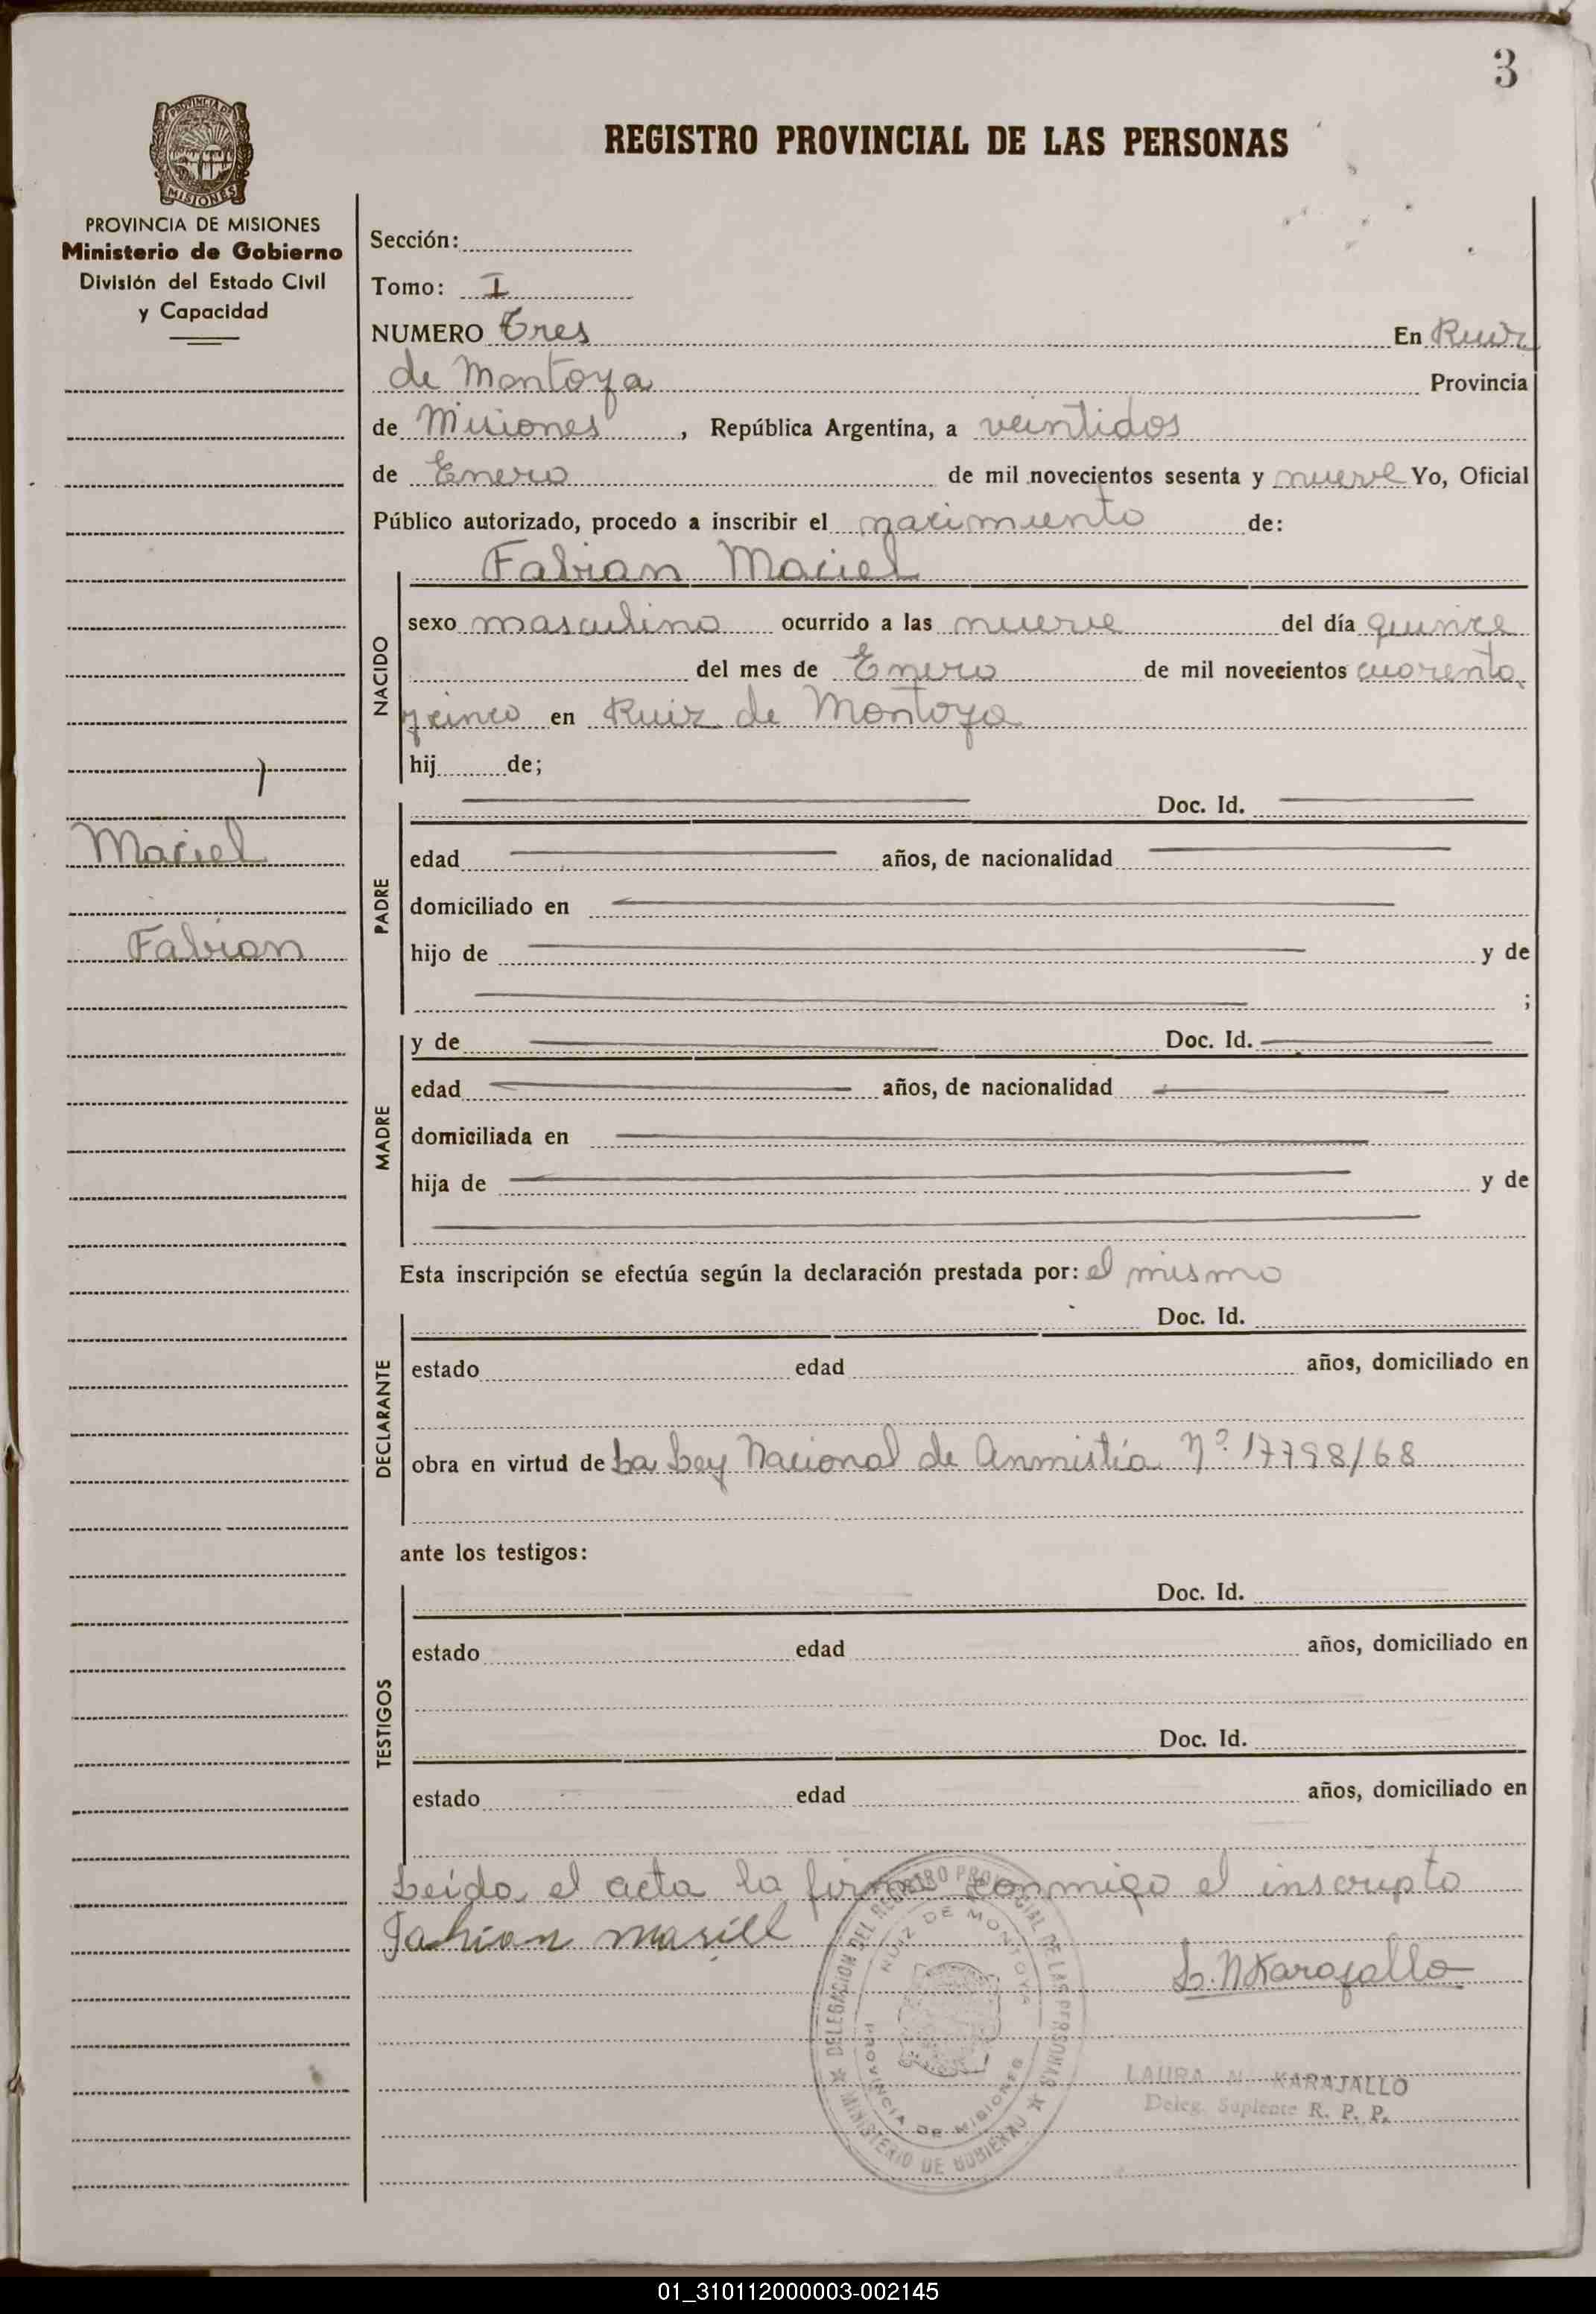 3
REGISTRO PROVINCIAL DE LAS PERSONAS
PROVINCIA DE
MISIONES
PROVINCIA DE MISIONES
Ministerio de Gobierno
División del Estado Civil
y Capacidad
Maciel
Fabian
Sección:
Tomo: I
NUMERO Tres En Ruiz
de Montoya Provincia
de Misiones, República Argentina, a veintidos
de Enero de mil novecientos sesenta y nueve Yo, Oficial
Público autorizado, procedo a inscribir el nacimiento de:
NACIDO
Fabian Maciel
sexo masculino ocurrido a las nueve del día quince
del mes de Enero de mil novecientos cuarenta
y cinco en Ruiz de Montoya
hij de;
PADRE
Doc. Id.
edad años, de nacionalidad
domiciliado en
hijo de y de
;
MADRE
y de Doc. Id.
edad años, de nacionalidad
domiciliada en
hija de y de
Esta inscripción se efectúa según la declaración prestada por: el mismo
DECLARANTE
Doc. Id.
estado edad años, domiciliado en
obra en virtud de La Ley Nacional de Anmistía Nº 17798/68
ante los testigos:
TESTIGOS
Doc. Id.
estado edad años, domiciliado en
Doc. Id.
estado edad años, domiciliado en
Leída el acta la firma conmigo el inscripto
Fabian Masiel
L. N Karajallo
DELEGACION DEL REGISTRO PROVINCIAL DE LAS PERSONAS
RUIZ DE MONTOYA
PROVINCIA DE MISIONES
MINISTERIO DE GOBIERNO
LAURA N. KARAJALLO
Deleg. Suplente R. P. P.
01_310112000003-002145